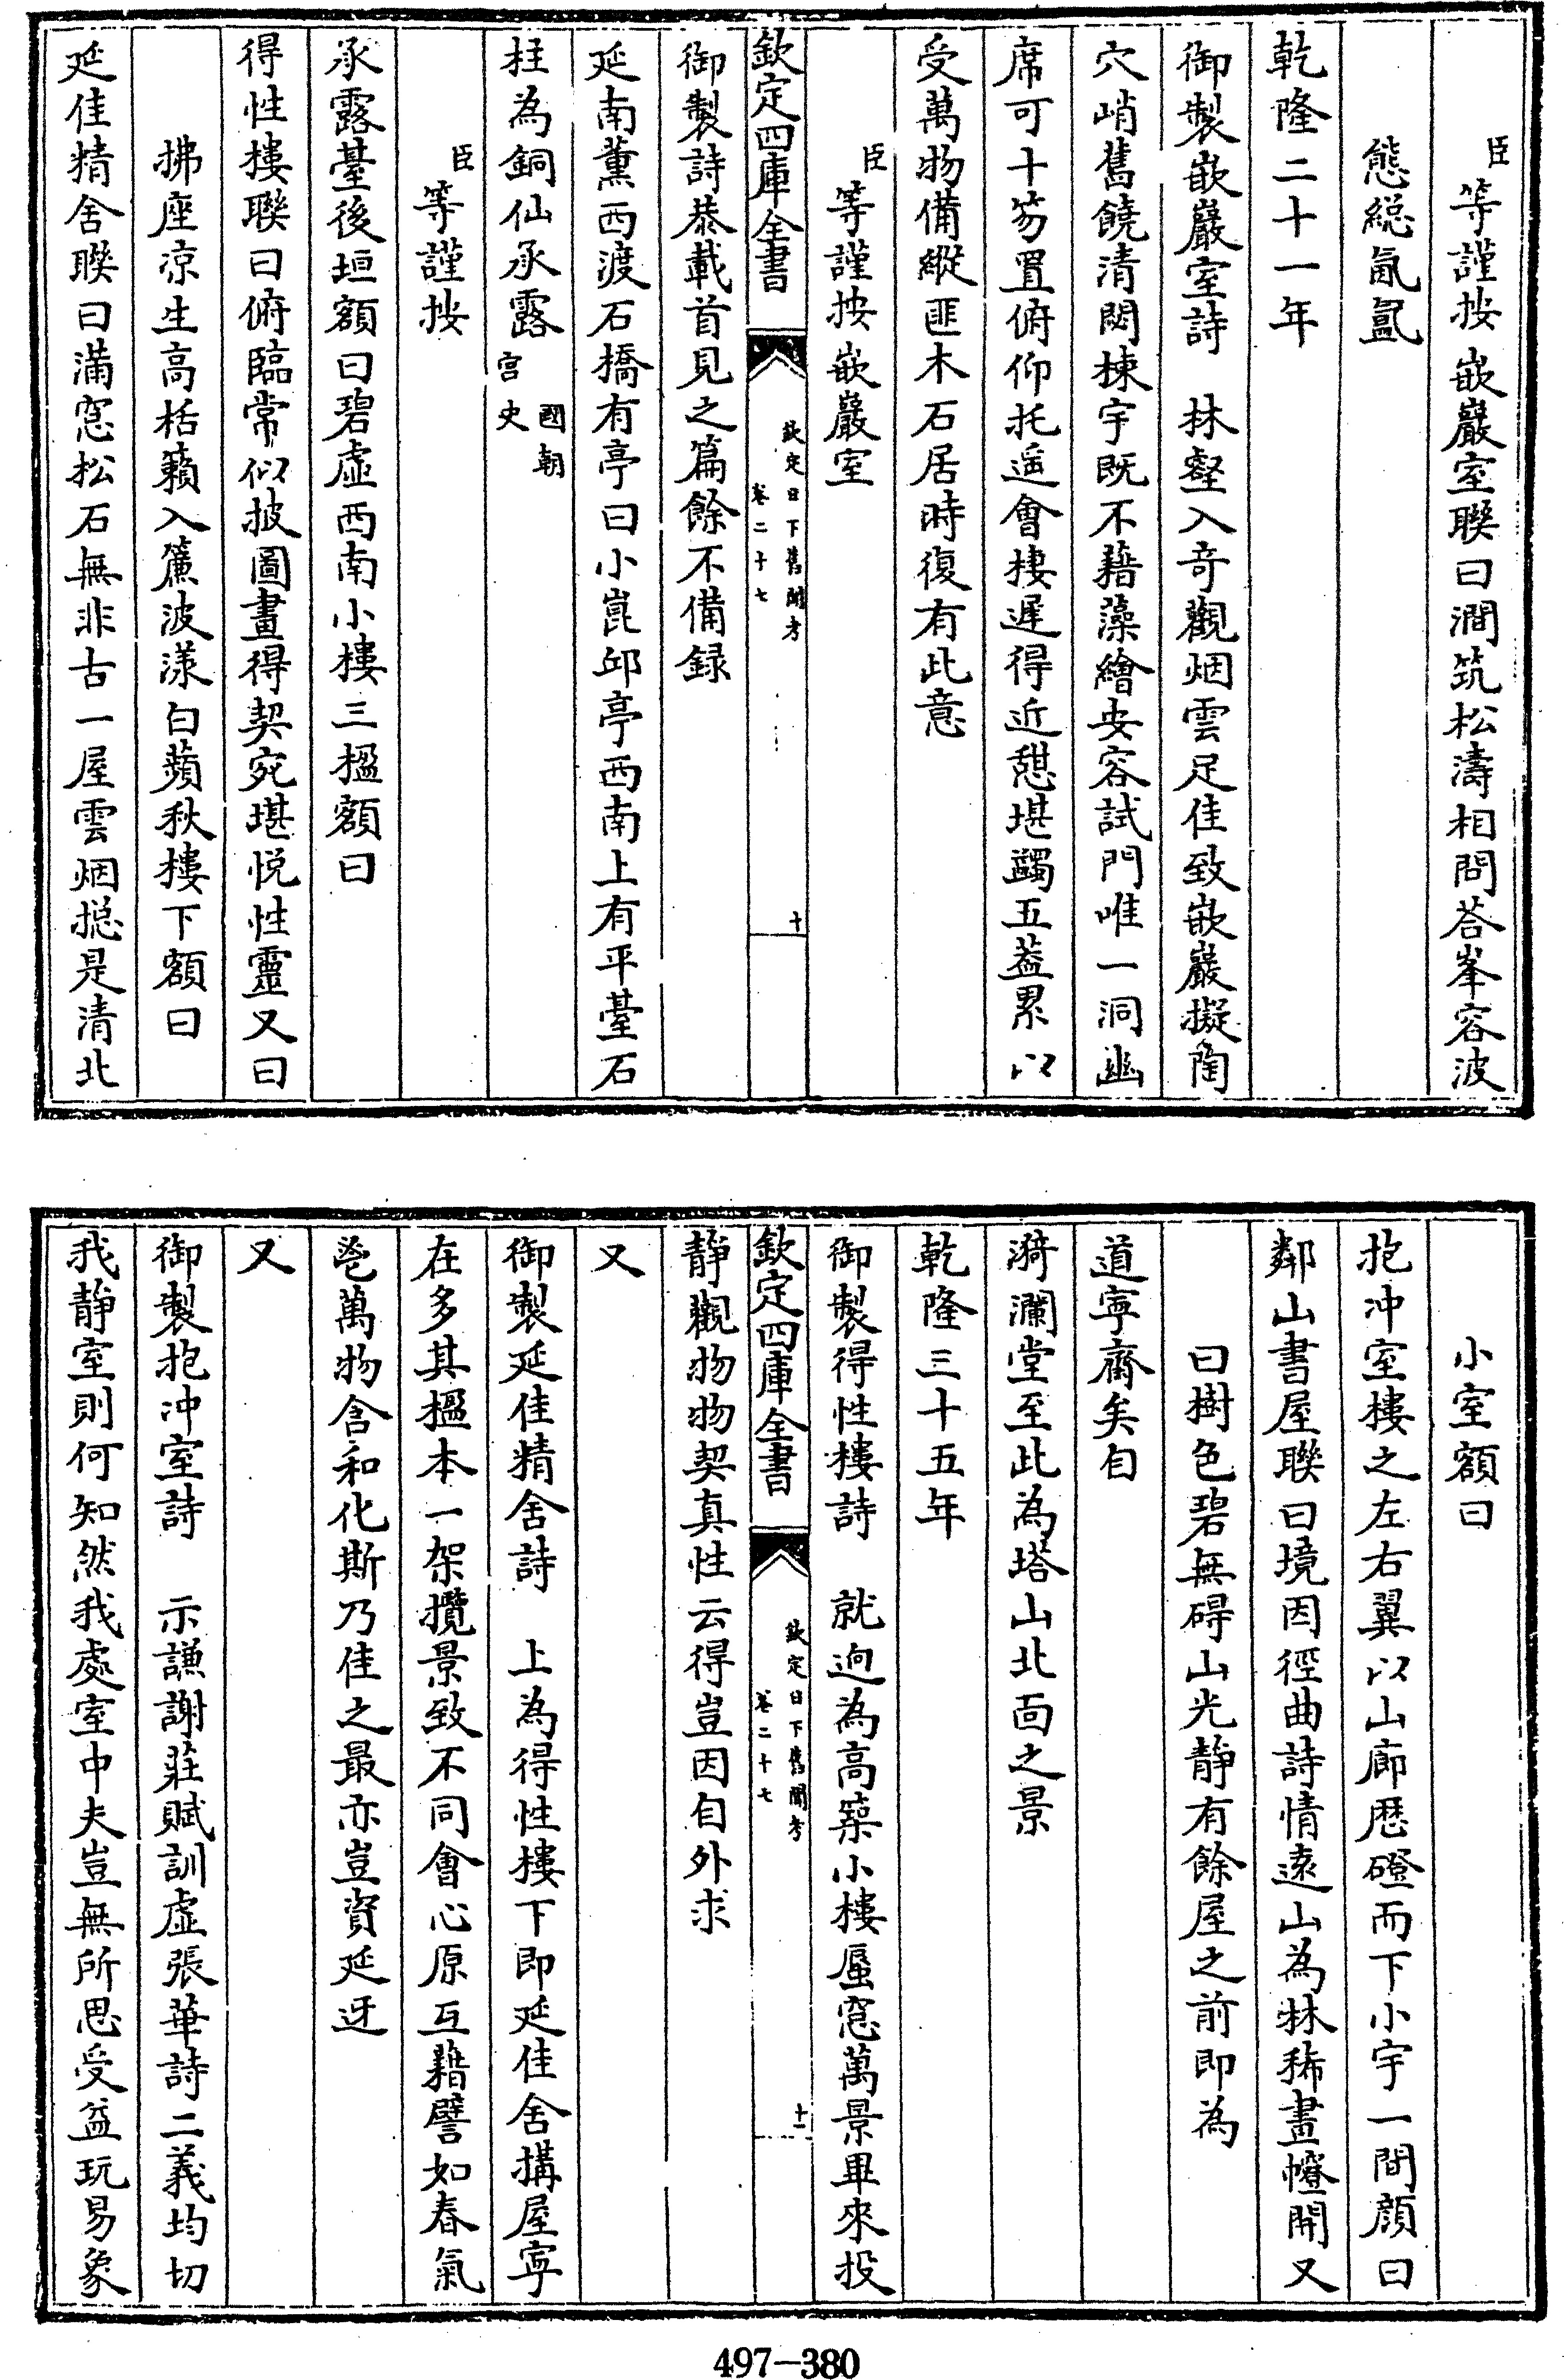 臣等謹按嵌巖室聯曰澗筑松濤相問荅峯容波
態總氤氳
乾隆二十一年
御製嵌巖室詩　林壑入奇觀烟雲足佳致嵌巖擬陶
穴峭舊饒清閟棟宇既不藉藻繪安容試門唯一洞幽
席可十笏置俯仰托遥會棲遲得近憇堪蠲五葢累以
受萬物備縱匪木石居時復有此意
臣等謹按嵌巖室
御製詩恭載首見之篇餘不備録
延南薰西渡石橋有亭曰小崑邱亭西南上有平臺石
柱為銅仙承露國朝宫史
臣等謹按
承露臺後垣額曰碧虚西南小樓三楹額曰
得性樓聯曰俯臨常似披圖畫得契宛堪悦性靈又曰
拂座凉生高栝籟入簾波漾白蘋秋樓下額曰
延佳精舍聯曰滿窓松石無非古一屋雲烟揔是清北
欽定四庫全書
欽定日下舊聞考
卷二十七
十
小室額曰
抱冲室樓之左右翼以山廊歷磴而下小宇一間顔曰
鄰山書屋聯曰境因徑曲詩情逺山為林稀畫幰開又
曰樹色碧無碍山光静有餘屋之前即為
道寧齋矣自
漪瀾堂至此為塔山北面之景
乾隆三十五年
御製得性樓詩　就逈為高築小樓蜃窓萬景畢來投
静觀物物契真性云得豈因自外求
又
御製延佳精舍詩　上為得性樓下即延佳舍搆屋寧
在多其楹本一架攬景致不同會心原互藉譬如春氣
邕萬物含和化斯乃佳之最亦豈資延迓
又
御製抱冲室詩　示謙謝莊賦訓虚張華詩二義均切
我静室則何知然我處室中夫豈無所思受益玩易象
欽定四庫全書
欽定日下舊聞考
卷二十七
十一
497-380